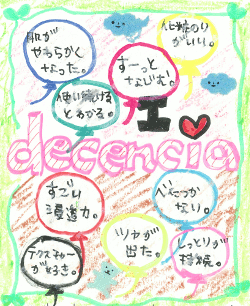 肌が
やわらかく
なった。
化粧のり
がいい。
すーっと
なじむ。
使い続ける
とわかる。
I ♥
decencia
すごい
浸透力。
べたつか
ない。
テクスチャー
が好き。
ツヤが
出た。
しっとりが
持続。